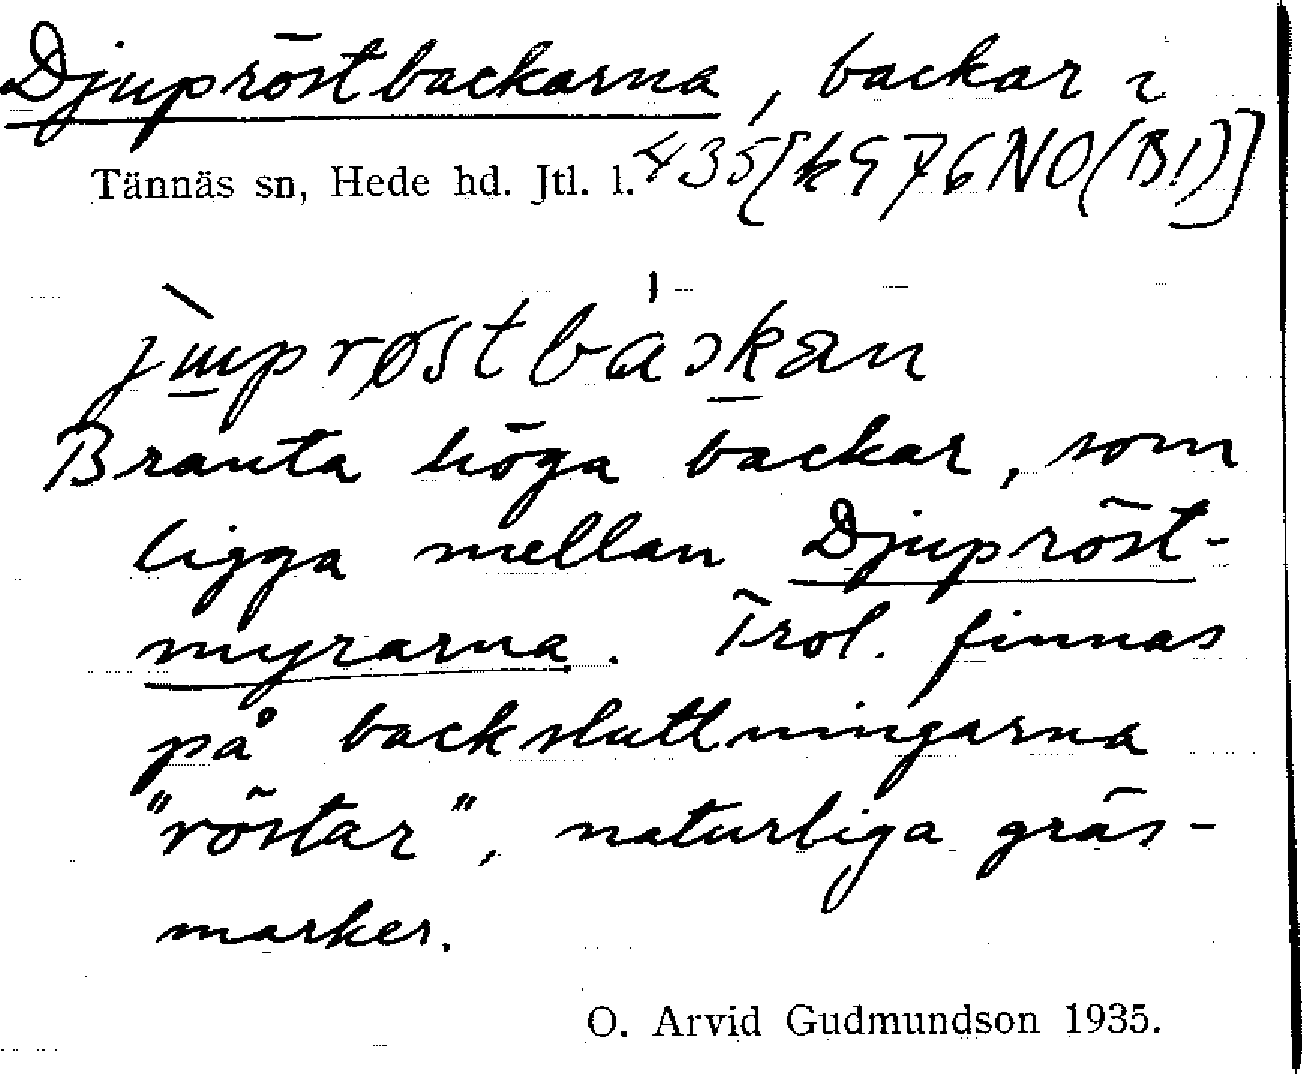 Djupröstbackarna, backar i
Tännäs sn, Hede hd. Jtl. l. 435[k976NO(B1)]
jɯprøstbaskan
Branta höga backar, som
ligga mellan Djupröst-
myrarna. Trol. finnas
på backsluttningarna
"röstar", naturliga gräs-
marker.
O. Arvid Gudmundson 1935.